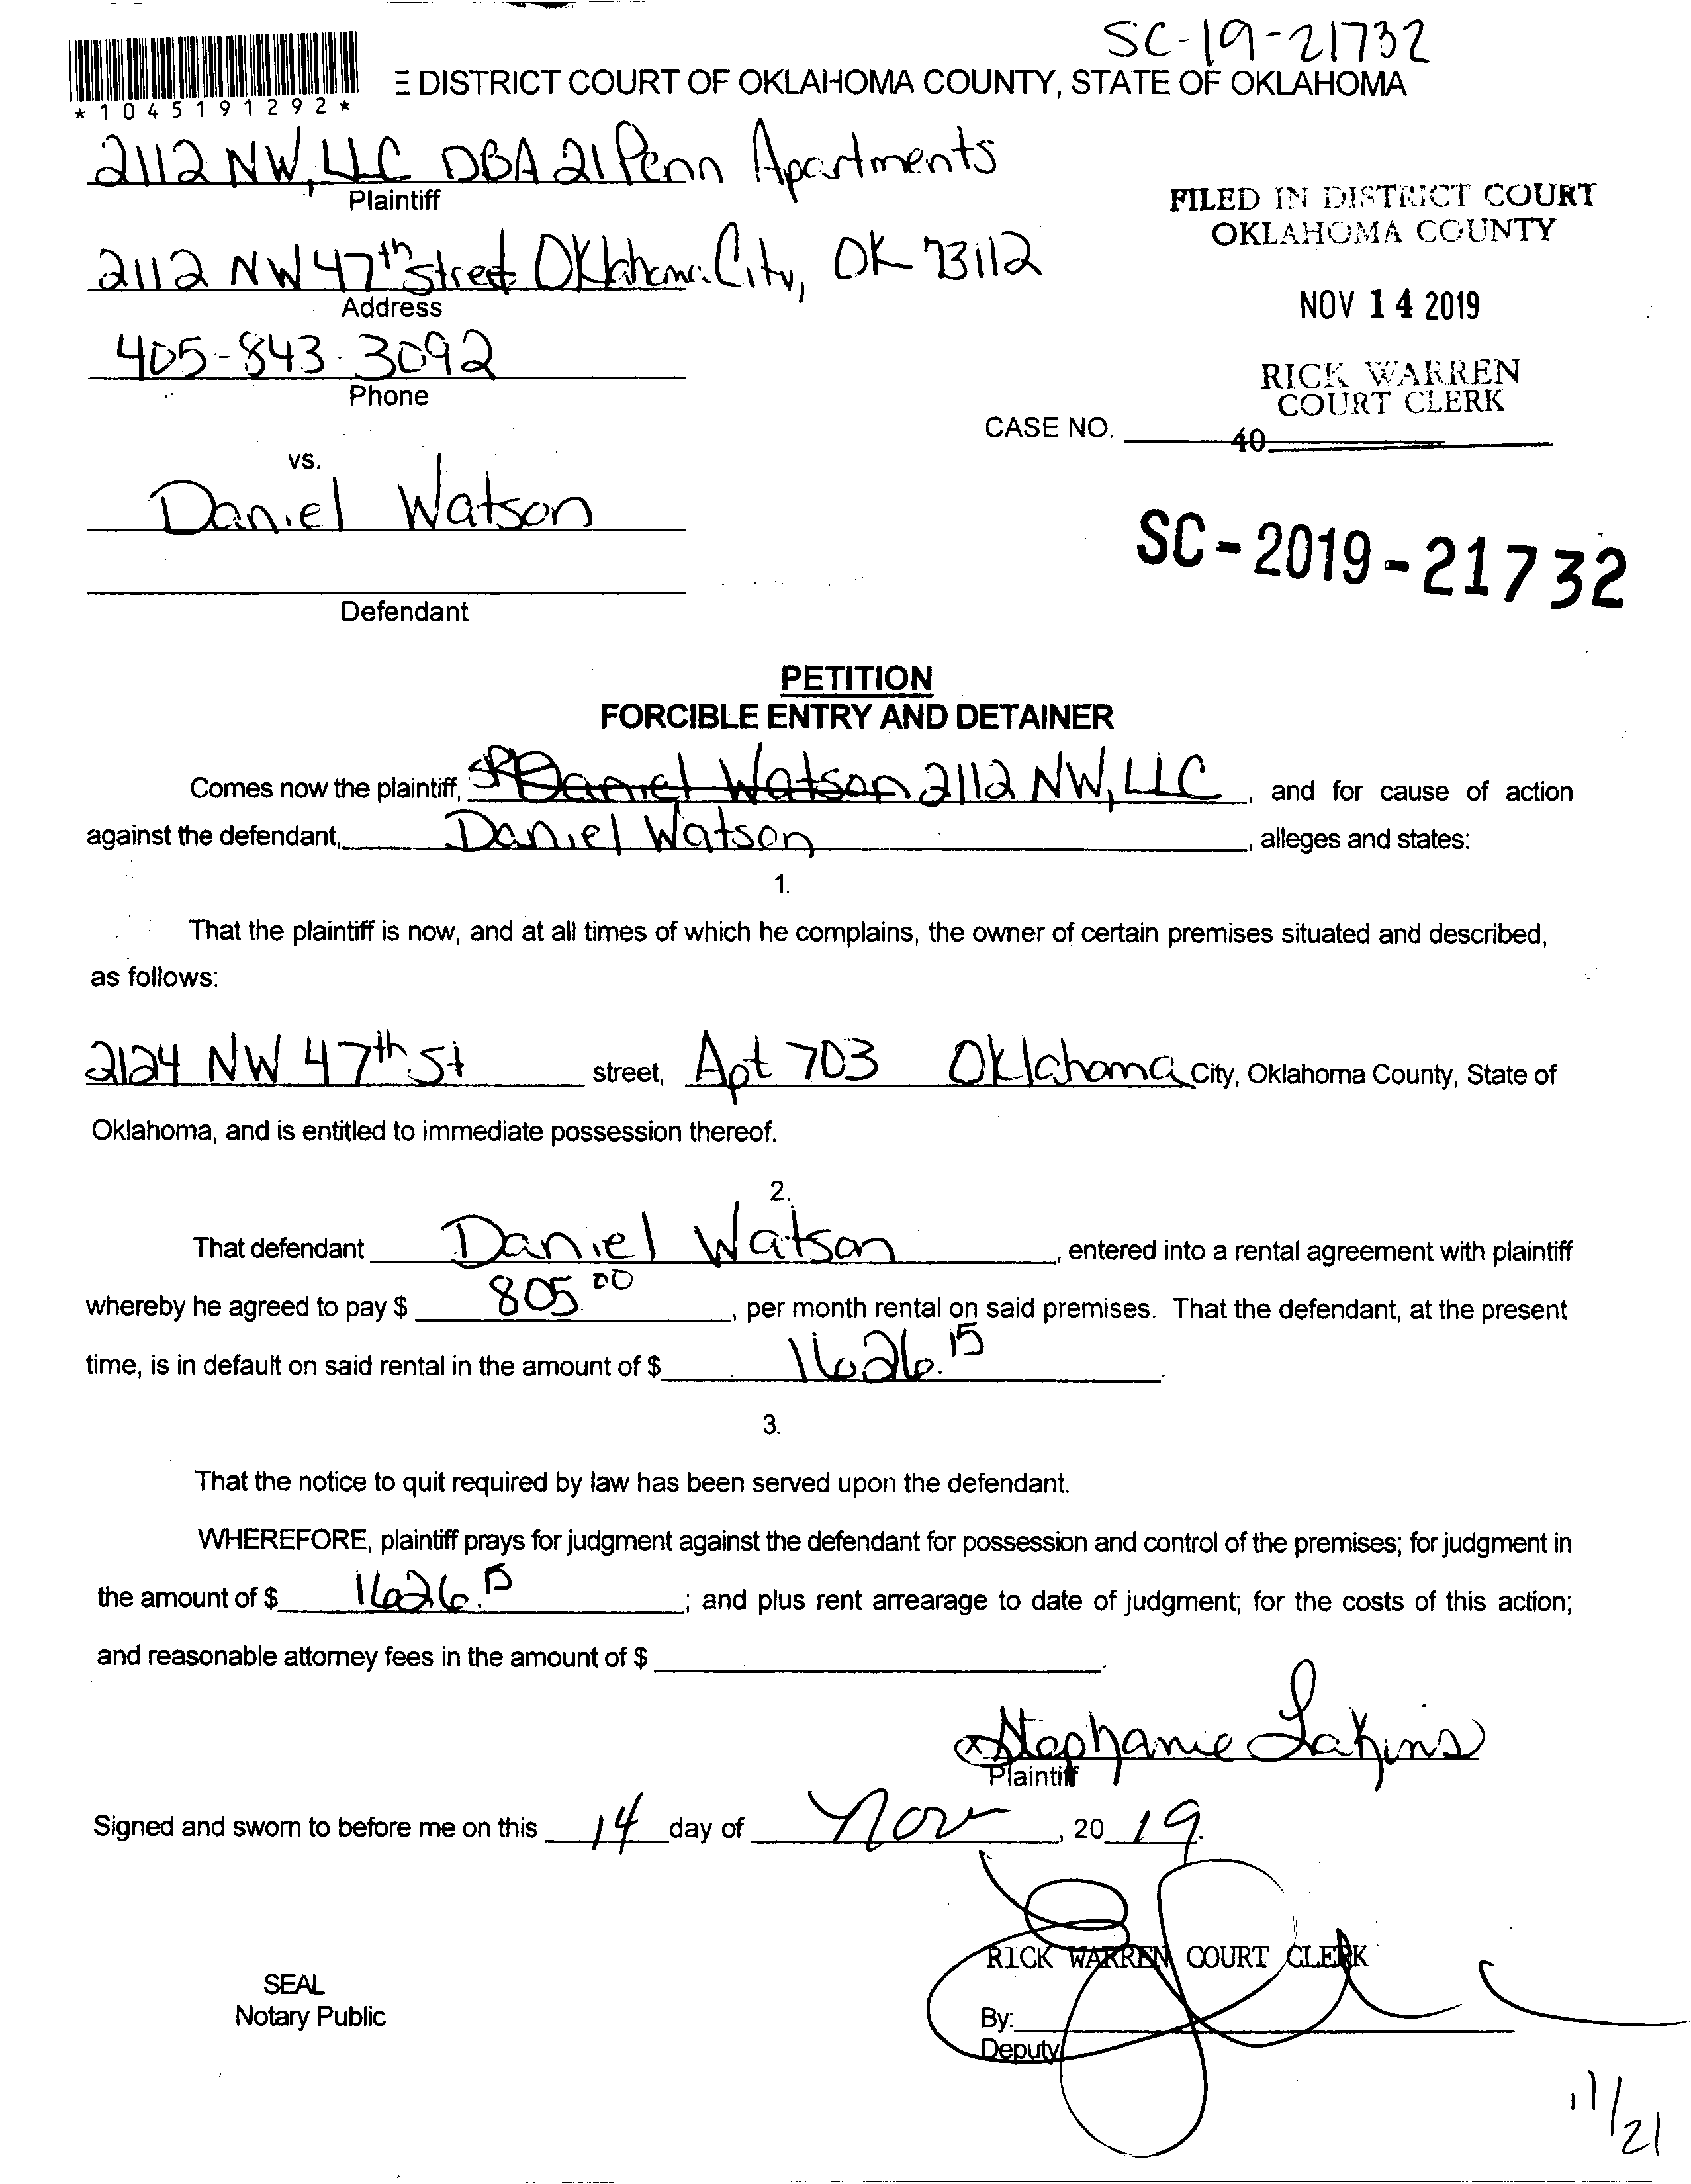 SC-19-21732
E DISTRICT COURT OF OKLAHOMA COUNTY, STATE OF OKLAHOMA
*1045191292*
2112 NW, LLC DBA 21 Penn Apartments
Plaintiff
FILED IN DISTRICT COURT
OKLAHOMA COUNTY
2112 NW 47th Street Oklahoma City, OK 73112
Address
NOV 14 2019
405-843-3092
Phone
RICK WARREN
COURT CLERK
CASE NO.
40
vs.
Daniel Watson
SC-2019-21732
Defendant
PETITION
FORCIBLE ENTRY AND DETAINER
Comes now the plaintiff, SR Daniel Watson 2112 NW, LLC, and for cause of action
against the defendant, Daniel Watson, alleges and states:
1.
That the plaintiff is now, and at all times of which he complains, the owner of certain premises situated and described,
as follows:
2124 NW 47th St street, Apt 703 Oklahoma City, Oklahoma County, State of
Oklahoma, and is entitled to immediate possession thereof.
2.
That defendant Daniel Watson, entered into a rental agreement with plaintiff
whereby he agreed to pay $ 805.00, per month rental on said premises. That the defendant, at the present
time, is in default on said rental in the amount of $ 1626.15.
3.
That the notice to quit required by law has been served upon the defendant.
WHEREFORE, plaintiff prays for judgment against the defendant for possession and control of the premises; for judgment in
the amount of $ 1626.15; and plus rent arrearage to date of judgment; for the costs of this action;
and reasonable attorney fees in the amount of $ .
x Stephanie Lakins
Plaintiff
Signed and sworn to before me on this 14 day of Nov, 2019.
RICK WARREN COURT CLERK
SEAL
Notary Public
By:
Deputy
11/21